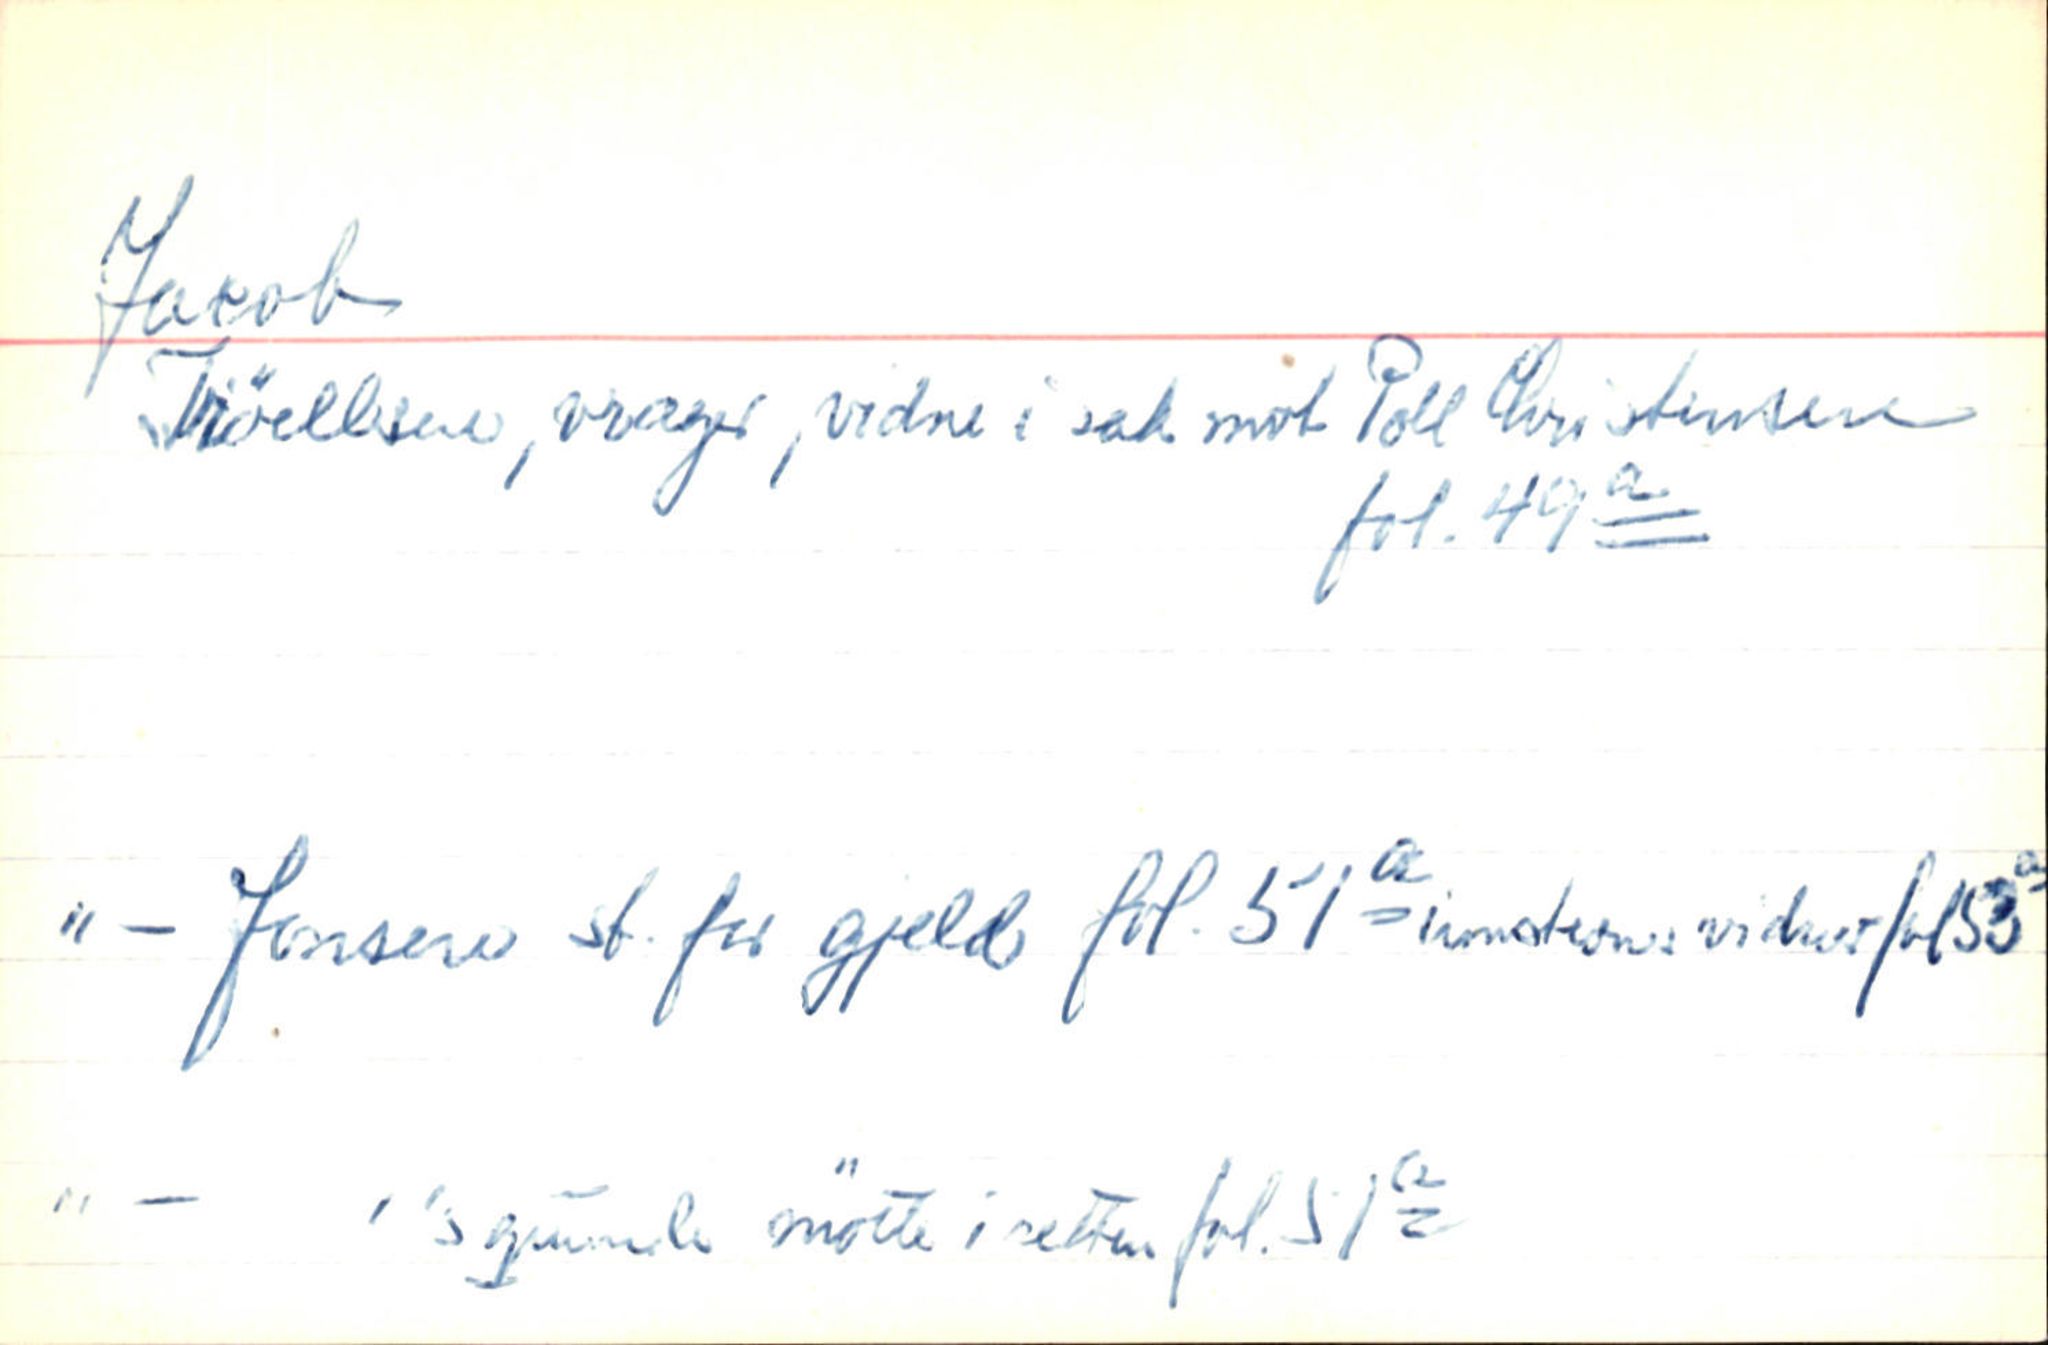 Jacob
Triöelbsen, vrager, vidne i sak mot Poll Christensen
fol. 49a
" – Jonsen st. for gjeld fol. 51a vidner fol 53a
" – " 's qvinde mötte i retten fol. 51a